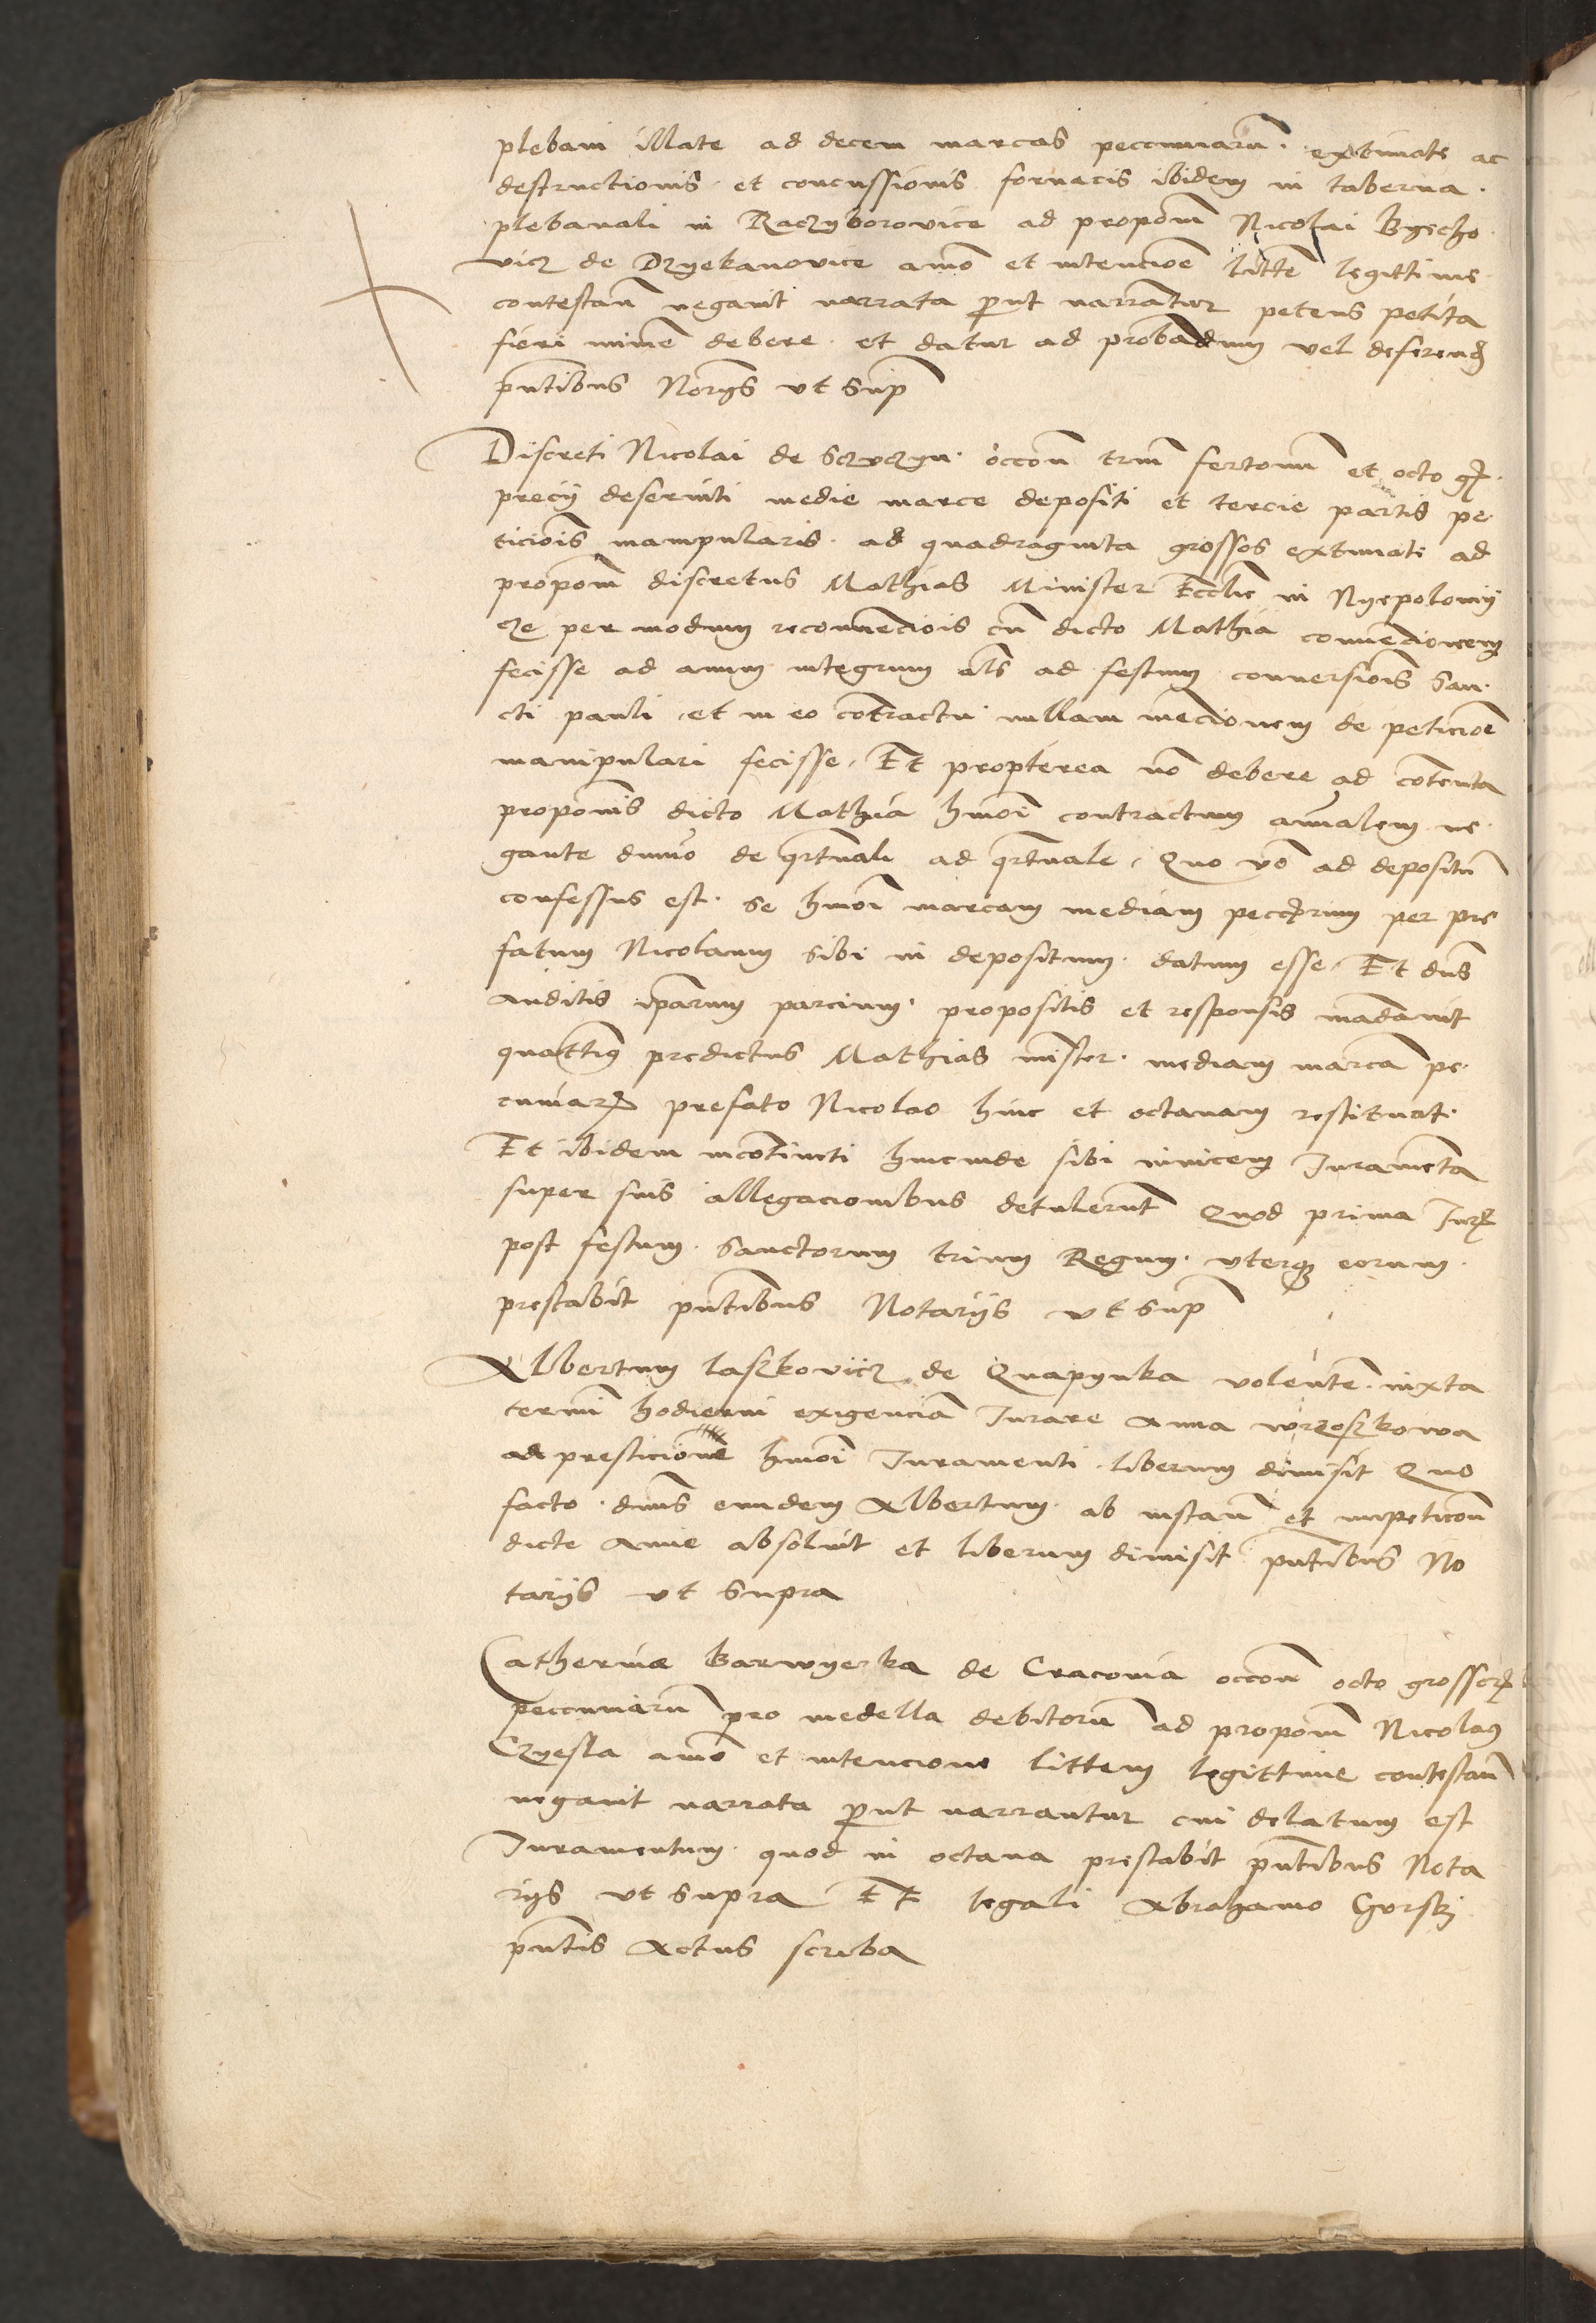 plebani illate ad decem marcas peccuniarũ. extimate ac
destructionis et concussionis fornacis ibidem in taberna.
plebanali in Raczyborovice ad propõm Nicolai Byecho
vicz de Dzyekanovice aĩo et intencioẽ littẽ legittime
contestañ negavit narrata p̃ut narrãtur petens petita
fieri minie debere. et datur ad probãdum vel deferend
p̃ntibus Nor͂ys ut sup͂
Discreti Nicolai de occõn triũ fertonũ et octo gr.
precii deserviti medie marce depositi et tercie partis pe
ticiõis manipularis. ad quadraginta grossos extimati ad
propõm discretus Mathias Minister Ecclie in Nyepolomy
cze per modum reconvenciõis cũ dicto Mathia convẽcionem
fecisse ad annum integrum als ad festum conversiõis San
cti pauli et in eo cõtractu nullam mẽcionem de peticioẽ
manipulari fecisse, Et propterea nõ debere ad cõtenta
propõnis dicto Mathia hmõi contractum annalem ne
gante dumo de qrtuali ad qrtuale, Quo võ ad depositũ
confessus est. se hmõi marcam mediam pecc͂rum per pre
fatum Nicolaum sibi in depositum. datum esse, Et dns
Auditis ip̃arum parcium. propositis et responsis mãdavit
quattin9 predictus Mathias mister. mediam marcã pe
cuniar͂ prefato Nicolao hinc et octavam restituat.
Et ibidem incõtineti hincinde sibi invicem Iuramẽta
super suis allegacionibus detulerũt Quod prima Iur͂
post festum. Sanctorum trium Regum. uterq3 eorum.
prestabit p̃ntibus Notariis ut sup͂
Albertum laszkovicz de Quapynka volentẽ. iuxta
termĩ hodierni exigenciã Iurare Anna wrzoszkowa
a presticione hmõi Iuramenti. liberum dimisit Quo
facto. dnus eundem Albertum. ab instañ et impeticõn
dicte Anne absolvit et liberum dimisit p̃ntibus No
tariis ut supra
Catherine Barwyerka de Cracovia occõne octo grossor͂
peccuniarũ pro medella debitorũ ad propõm Nicolaus
Czyesla aĩo et intencione littem legittime contestañ
negavit narrata p̃ut narrantur cui delatum est
Iuramentum. quod in octava prestabit p̃ntibus Nota
riis ut supra Et legali Abrahamo Gorskj
p̃ntis Actus scriba